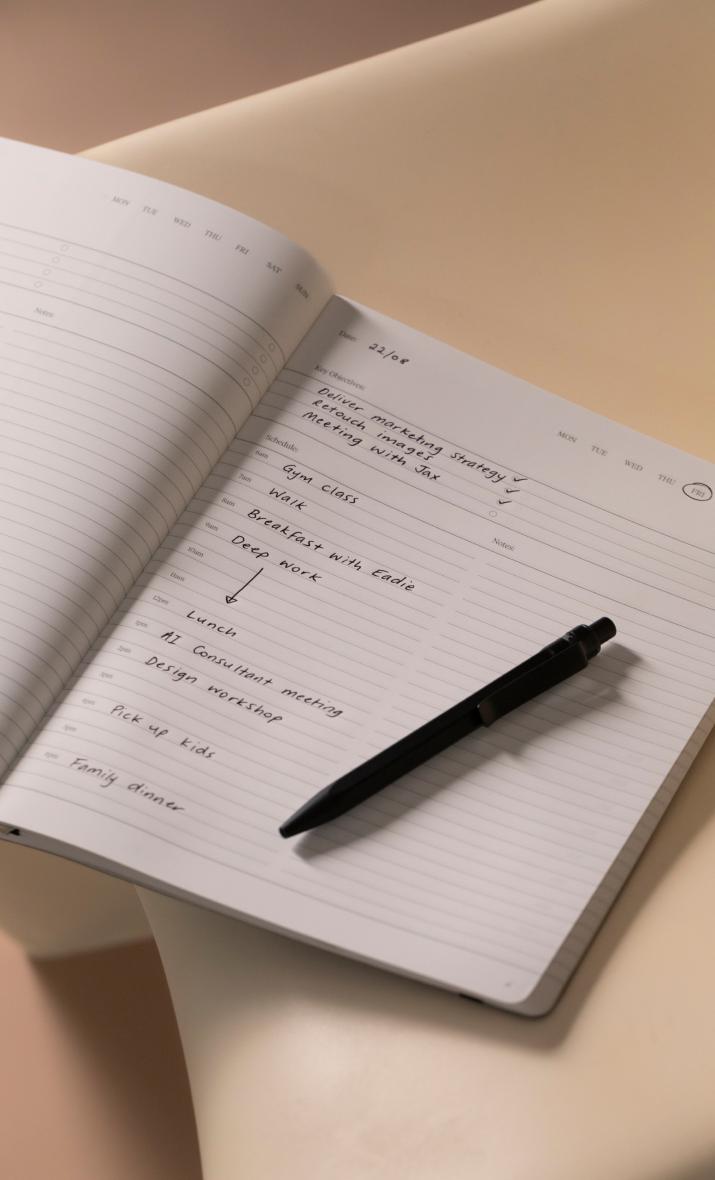 MON TUE WED THU FRI SAT SUN
Notes:
Date: 22/08
MON TUE WED THU FRI
Key Objectives:
Deliver marketing strategy
retouch images
Meeting with Jax
Schedule:
Notes:
6am Gym class
7am Walk
8am Breakfast with Eadie
9am Deep work
10am
11am
12pm Lunch
1pm AI Consultant meeting
2pm Design workshop
3pm
4pm Pick up kids
5pm
6pm Family dinner